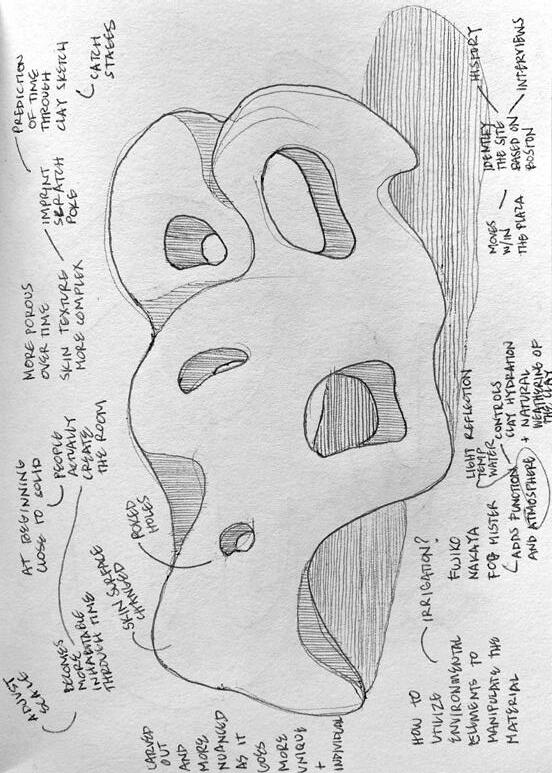 ADJUST
SCALE
BECOMES
MORE
INHABITABLE
THROUGH TIME
AT BEGINNING
CLOSE TO SOLID
PEOPLE
ACTUALLY
CREATE
THE ROOM
MORE POROUS
OVER TIME
SKIN TEXTURE
MORE COMPLEX
IMPRINT
SCRATCH
POKE
PREDICTION
OF TIME
THROUGH
CLAY SKETCH
CATCH
STAGES
SKIN SURFACE
CHANGED
POKED
HOLES
CARVED
OUT
AND
MORE
NUANCED
AS IT
GOES
MORE
UNIQUE
+
INDIVIDUAL
HOW TO
UTILIZE
ENVIRONMENTAL
ELEMENTS TO
MANIPULATE THE
MATERIAL
IRRIGATION?
FUJIKO
NAKAYA
FOG MISTER
ADDS FUNCTION
AND ATMOSPHERE
LIGHT REFLECTION
TEMP
WATER
CONTROLS
CLAY HYDRATION
+ NATURAL
WEATHERING OF
THE CLAY
MOVES
W/IN
THE PLAZA
IDENTIFY
THE SITE
BASED ON
BOSTON
HISTORY
INTERVIEWS